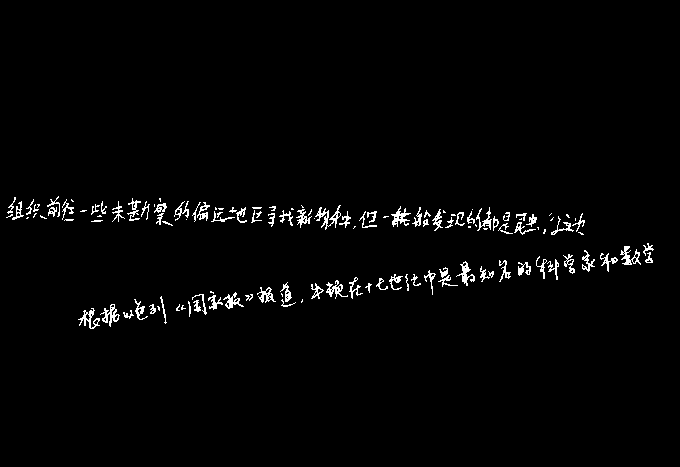 组织前往一些未勘察的偏远地区寻找新物种,但一般能发现的都是昆虫,这次
根据以色列《国家报》报道,牛顿在十七世纪中是最知名的科学家和数学